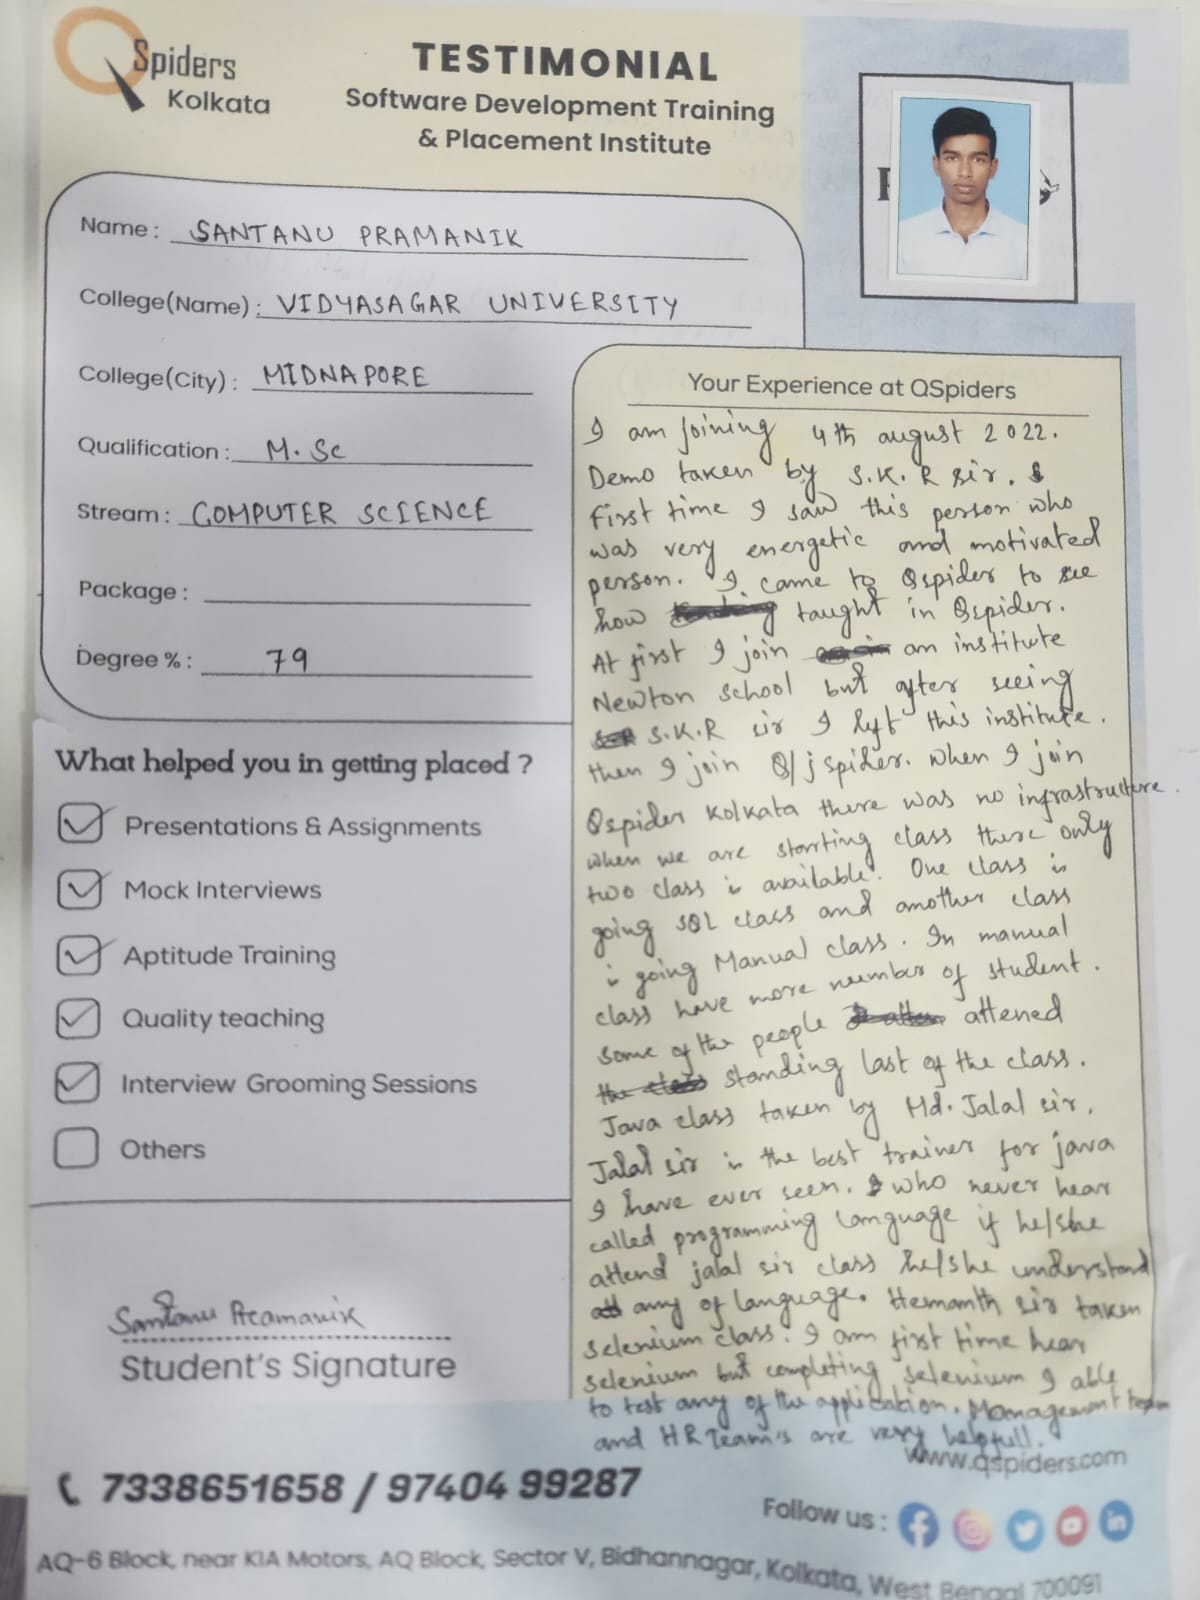 QSpiders
Kolkata
TESTIMONIAL
Software Development Training
& Placement Institute
Name : SANTANU PRAMANIK
College(Name) : VIDYASAGAR UNIVERSITY
College(City) : MIDNAPORE
Qualification : M.Sc
Stream : COMPUTER SCIENCE
Package :
Degree % : 79
What helped you in getting placed ?
Presentations & Assignments
Mock Interviews
Aptitude Training
Quality teaching
Interview Grooming Sessions
Others
Santanu Pramanik
Student's Signature
Your Experience at QSpiders
I am Joining 4th august 2022.
Demo taken by S.K.R sir.
First time I saw this person who
was very energetic and motivated
person. I came to Qspider to see
how taught in Qspider.
At first I join an institute
Newton school but after seeing
S.K.R sir I left this institute.
then I join Q/j spider. When I join
Qspider Kolkata there was no infrastructure.
when we are starting class there only
two class is available. One class is
going SQL class and another class
is going Manual class. In manual
class have more number of student.
Some of the people attened
standing last of the class.
Java class taken by Md. Jalal sir.
Jalal sir is the best trainer for java
I have ever seen. who never hear
called programming language if he/she
attend jalal sir class he/she understand
any of language. Hemanth sir taken
selenium class. I am first time hear
selenium but completing selenium I able
to test any of the application. Management team
and HR Team's are very helpfull.
www.qspiders.com
7338651658 / 97404 99287
Follow us :
AQ-6 Block, near KIA Motors, AQ Block, Sector V, Bidhannagar, Kolkata, West Bengal 700091